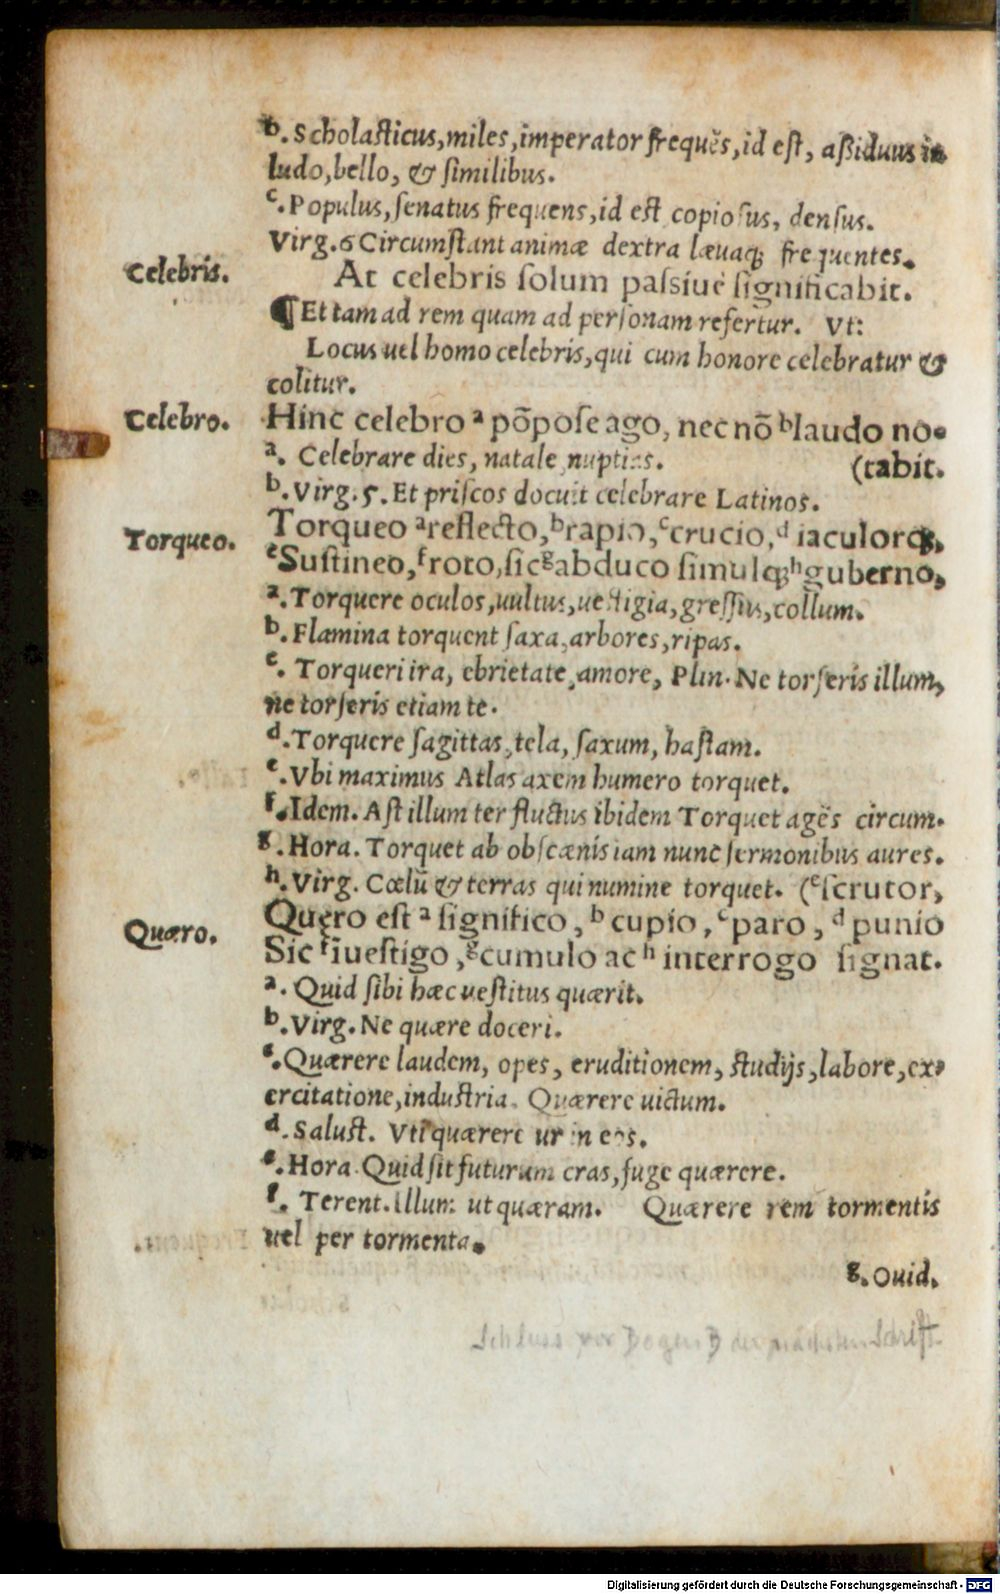 b. Scholasticus, miles, imperator frequẽs, id est, aßiduus in
ludo, bello, & similibus.
c. Populus, senatus frequens, id est copiosus, densus.
Virg. 6 Circumstant animæ dextra lævaq; frequentes.
Celebris. At celebris solum passiuè significabit.
¶ Et tam ad rem quam ad personam refertur. Vt:
Locus uel homo celebris, qui cum honore celebratur &
colitur.
Celebro. Hinc celebro ᵃ põpose ago, nec nõ ᵇ laudo no-
a. Celebrare dies, natale nuptias. (tabit.
b. Virg. 5. Et priscos docuit celebrare Latinos.
Torqueo. Torqueo ᵃ reflecto, ᵇ rapio, ᶜ crucio, ᵈ iaculorq;,
ᵉ Sustineo, ᶠ roto, sic ᵍ abduco simulq; ʰ guberno,
a. Torquere oculos, uultus, uestigia, gressus, collum.
b. Flamina torquent saxa, arbores, ripas.
c. Torqueri ira, ebrietate, amore, Plin. Ne torseris illum,
ne torseris etiam te.
d. Torquere sagittas, tela, saxum, hastam.
e. Vbi maximus Atlas axem humero torquet.
f. Idem. Ast illum ter fluctus ibidem Torquet agẽs circum.
g. Hora. Torquet ab obscænis iam nunc sermonibus aures.
h. Virg. Cœlũ & terras qui numine torquet. (ᵉ scrutor,
Quæro. Quęro est ᵃ significo, ᵇ cupio, ᶜ paro, ᵈ punio
Sic ᶠ ĩuestigo, ᵍ cumulo ac ʰ interrogo signat.
a. Quid sibi hæc uestitus quærit.
b. Virg. Ne quære doceri.
c. Quærere laudem, opes, eruditionem, studijs, labore, ex-
ercitatione, industria. Quærere uictum.
d. Salust. Vti quærere ur in eos.
e. Hora. Quid sit futurum cras, fuge quærere.
f. Terent. illum ut quæram. Quærere rem tormentis
uel per tormenta.
g. Ouid.
Schluss vor Bogen B der nächsten Schrift.
Digitalisierung gefördert durch die Deutsche Forschungsgemeinschaft - DFG